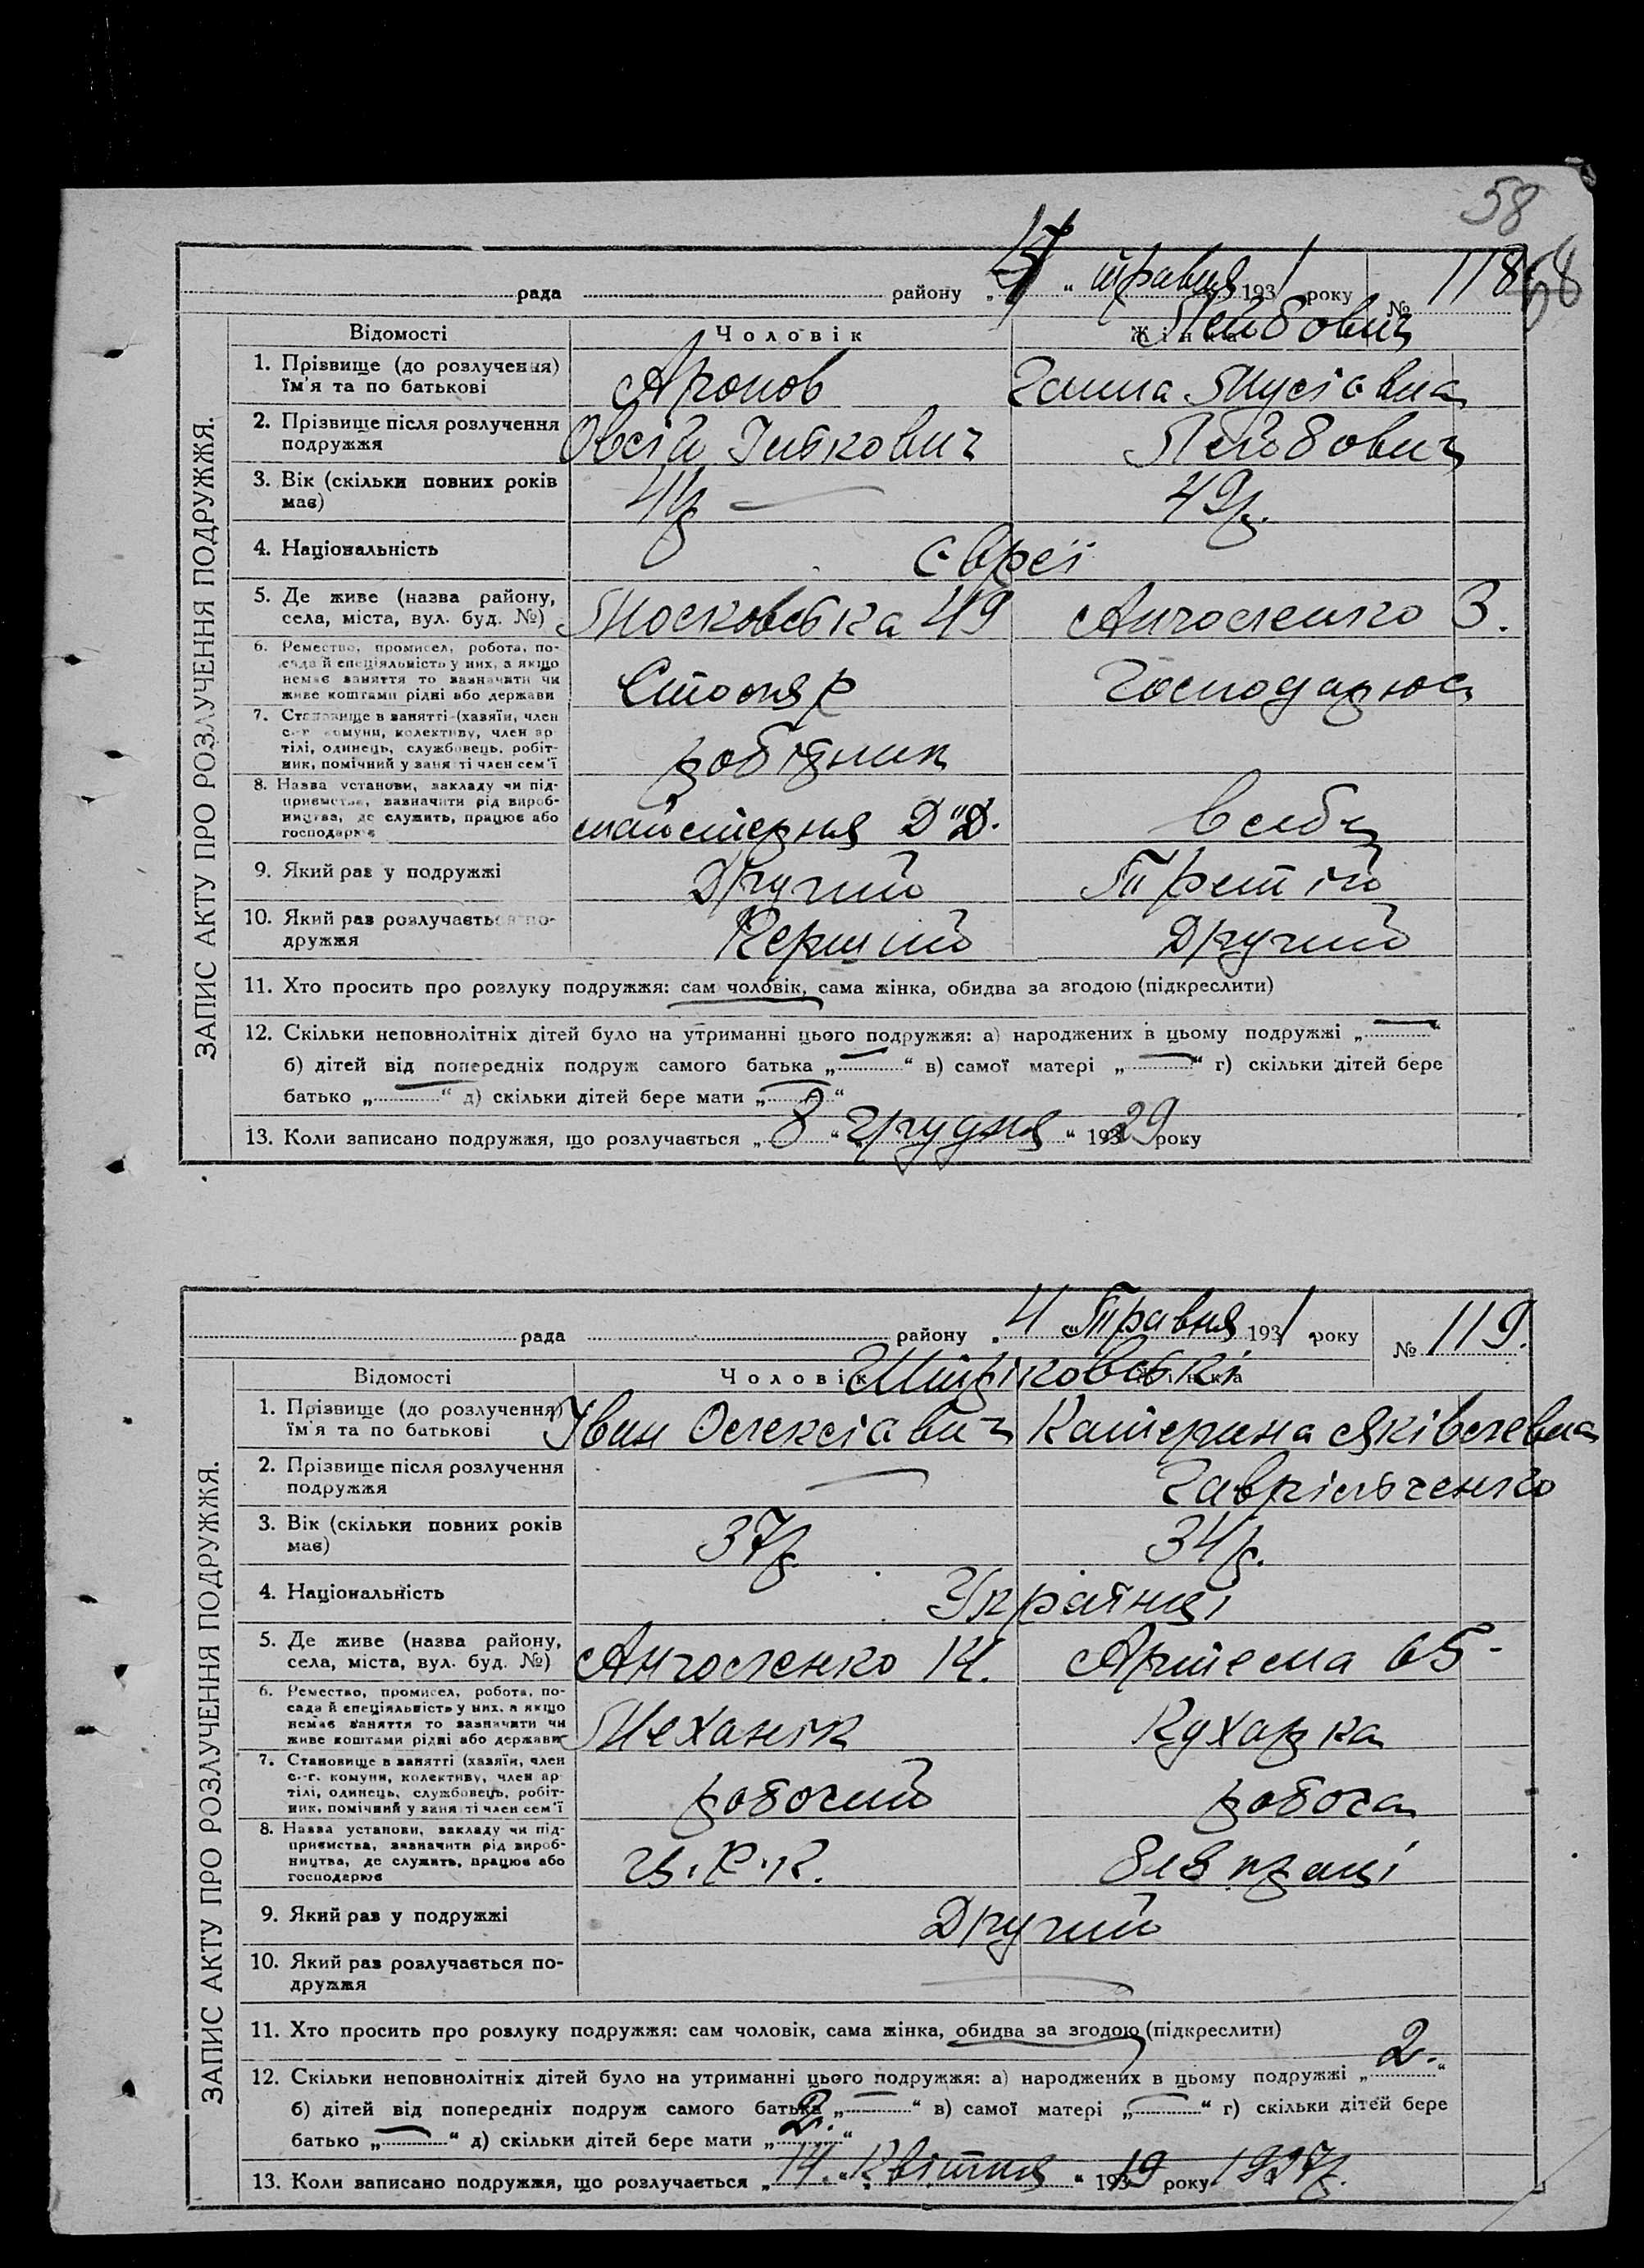 58
рада району „4“ травня 1931 року № 118 68
ЗАПИС АКТУ ПРО РОЗЛУЧЕННЯ ПОДРУЖЖЯ.
Відомості Чоловік Жінка Лейбович
1. Прізвище (до розлучення) їм'я та по батькові Аронов Ганна Мусіовна
2. Прізвище після розлучення подружжя Овсій Ітькович Лейбович
3. Вік (скільки повних років має) 41р — 49р.
4. Національність Євреї
5. Де живе (назва району, села, міста, вул. буд. №) Московська 49 Анголенко 3.
6. Ремество, промисел, робота, посада й спеціяльність у них, а якщо немає заняття то зазначити чи живе коштами рідні або держави Столяр Господарює
7. Становище в занятті (хазяїн, член с.-г. комуни, колективу, член артілі, одинець, службовець, робітник, помічний у занятті член сем'ї робітник
8. Назва установи, закладу чи підприємства, зазначити рід виробництва, де служить, працює або господарює майстерня Д"Д. в себе
9. Який раз у подружжі Другий Третій
10. Який раз розлучається подружжя Перший Другий
11. Хто просить про розлуку подружжя: сам чоловік, сама жінка, обидва за згодою (підкреслити)
12. Скільки неповнолітніх дітей було на утриманні цього подружжя: а) народжених в цьому подружжі „—“
б) дітей від попередніх подруж самого батька „—“ в) самої матері „—“ г) скільки дітей бере
батько „—“ д) скільки дітей бере мати „—“
13. Коли записано подружжя, що розлучається „8“ „грудня“ 19329 року
рада району „4 „Травня 1931 року № 119.
ЗАПИС АКТУ ПРО РОЗЛУЧЕННЯ ПОДРУЖЖЯ.
Відомості Чоловік Жінка
1. Прізвище (до розлучення) їм'я та по батькові Іван Олексіавич Катерина Яківлевна
2. Прізвище після розлучення подружжя — Гаврільченко
3. Вік (скільки повних років має) 37р 34р.
4. Національність Українці
5. Де живе (назва району, села, міста, вул. буд. №) Анголенко 14. Артема 65-
6. Ремество, промисел, робота, посада й спеціяльність у них, а якщо немає заняття то зазначити чи живе коштами рідні або держави Механік Кухарка
7. Становище в занятті (хазяїн, член с.-г. комуни, колективу, член артілі, одинець, службовець, робітник, помічний у занятті член сем'ї робочий робоча
8. Назва установи, закладу чи підприємства, зазначити рід виробництва, де служить, працює або господарює Ц.Р.К.
9. Який раз у подружжі Другий
10. Який раз розлучається подружжя —
11. Хто просить про розлуку подружжя: сам чоловік, сама жінка, обидва за згодою (підкреслити)
12. Скільки неповнолітніх дітей було на утриманні цього подружжя: а) народжених в цьому подружжі „2.“
б) дітей від попередніх подруж самого батька „—“ в) самої матері „—“ г) скільки дітей бере
батько „—“ д) скільки дітей бере мати „2.“
13. Коли записано подружжя, що розлучається „14.“ „Квітня“ 19319 року 1927р.